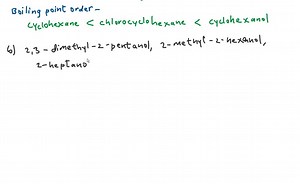 Boiling point order -
cyclohexane < chlorocyclohexane < cyclohexanol
6) 2,3-dimethyl-2-pentanol, 2-methyl-2-hexanol,
2-heptano